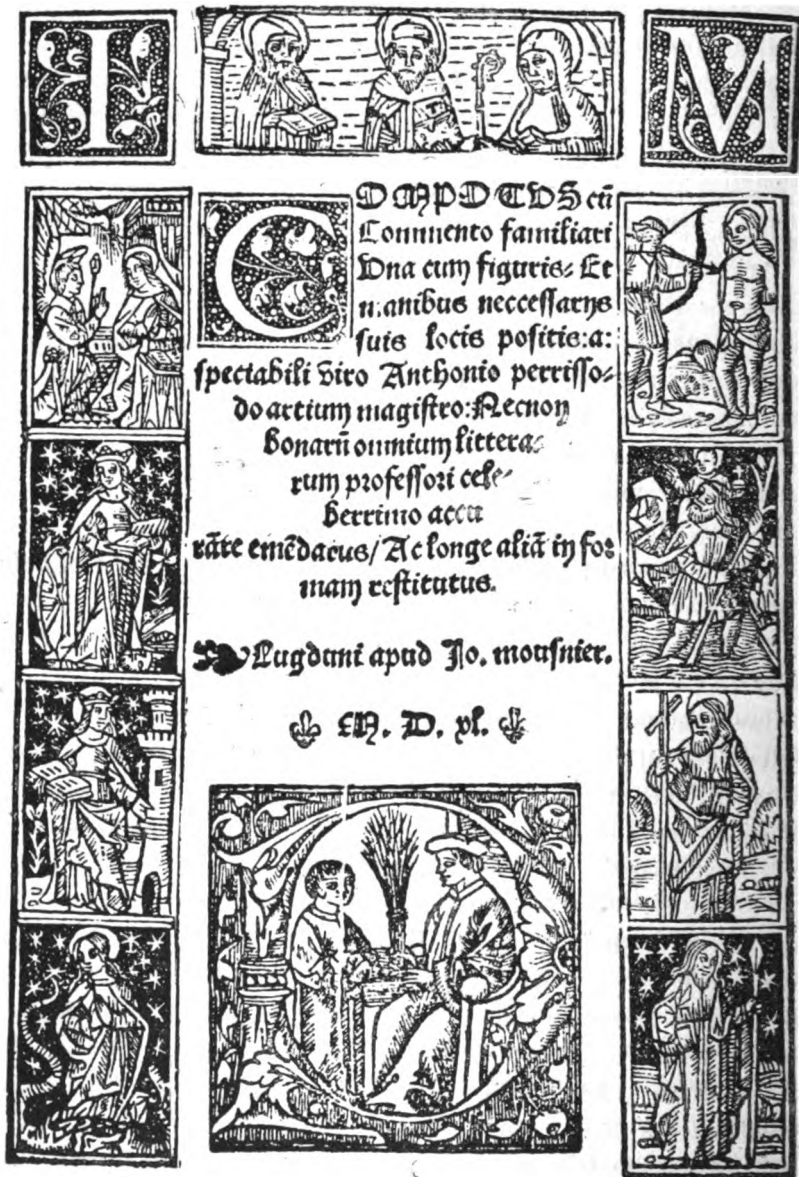 I M
COMPOTUS cū
Commento familiari
Una cum figuris: Et
manibus neccessarijs
suis locis positis: a:
spectabili viro Anthonio perrisso-
do artium magistro: Necnon
bonarū omnium littera-
rum professori cele-
berrimo accu
rāte emēdatus/ Ac longe aliā in for
mam restitutus.
Lugduni apud Jo. mousnier.
M. D. xl.